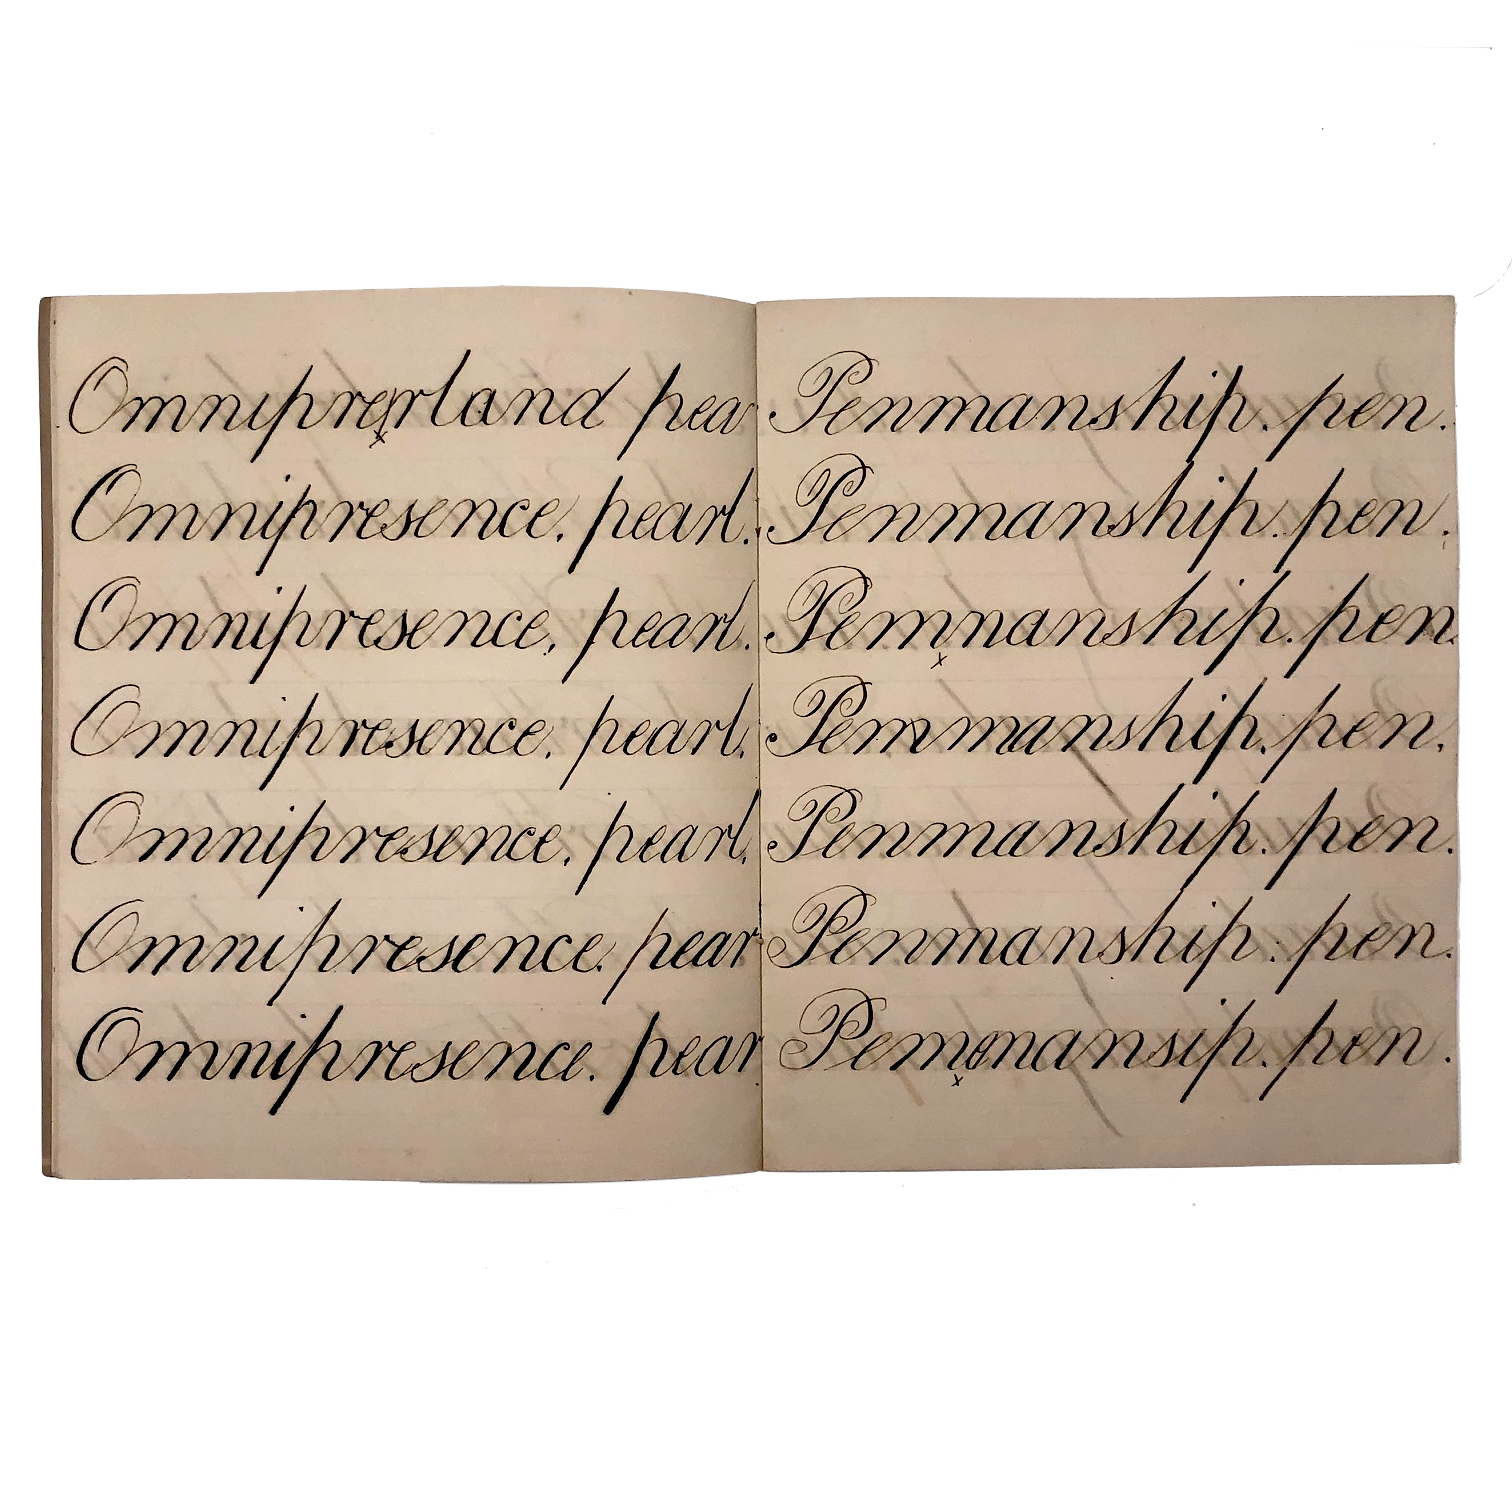 Omniprerland pear
Omnipresence. pearl.
Omnipresence, pearl.
Omnipresence. pearl.
Omnipresence, pearl.
Omnipresence. pear
Omnipresence. pear
Penmanship. pen.
Penmanship. pen.
Pemnanship. pen.
Pemmanship. pen.
Penmanship. pen.
Penmanship. pen.
Pemomansip. pen.